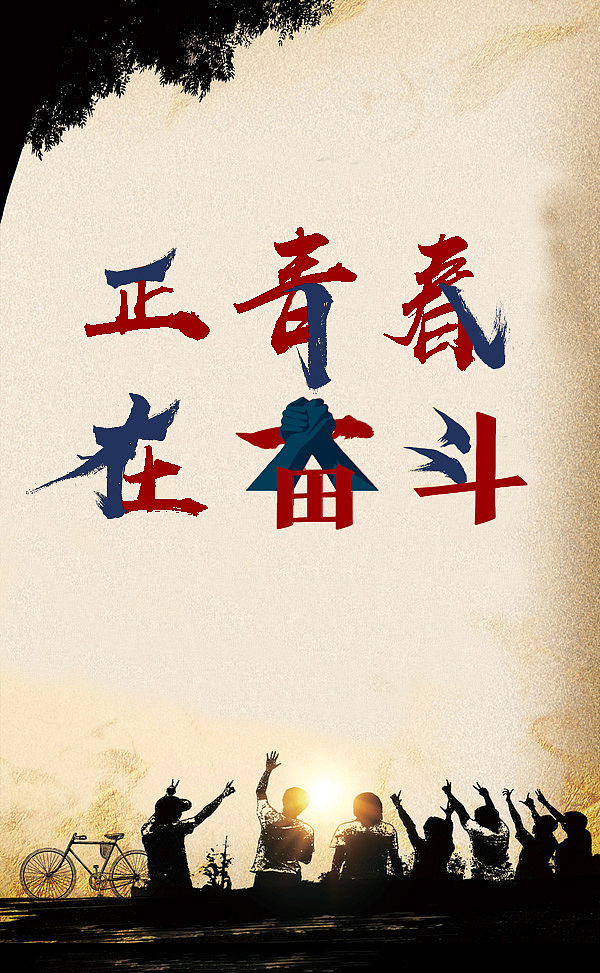 正青春
在奋斗